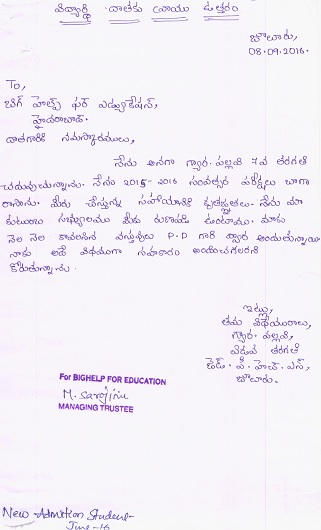 విద్యార్థి దాతకు వ్రాయు ఉత్తరం
బొలారు,
08.09.2016.
To,
బిగ్ హెల్ప్ ఫర్ ఎడ్యుకేషన్,
హైదరాబాద్.
దాతగారికి నమస్కారములు,
నేను అనగా గ్యార. పల్లవి 7వ తరగతి
చదువుచున్నాను. నేను 2015-2016 సంవత్సర పరీక్షలు బాగా
రాసాను. మీరు చేస్తున్న సహాయానికి కృతజ్ఞతలు. నేను మా
కుటుంబ సభ్యులము మీకు రుణపడి ఉంటాము. మాకు
నెల నెల కావలసిన వస్తువులు P.D గారి ద్వార అందుతున్నాయి
నాకు అదే విధముగా సహకారం అందించగలరని
కోరుతున్నాను.
ఇట్లు,
తమ విధేయురాలు,
గ్యార. పల్లవి,
ఏడవ తరగతి
జెడ్. పి. హెచ్. ఎస్,
బొలారు.
For BIGHELP FOR EDUCATION
M. Sarojini
MANAGING TRUSTEE
New Admition Student-
June-16